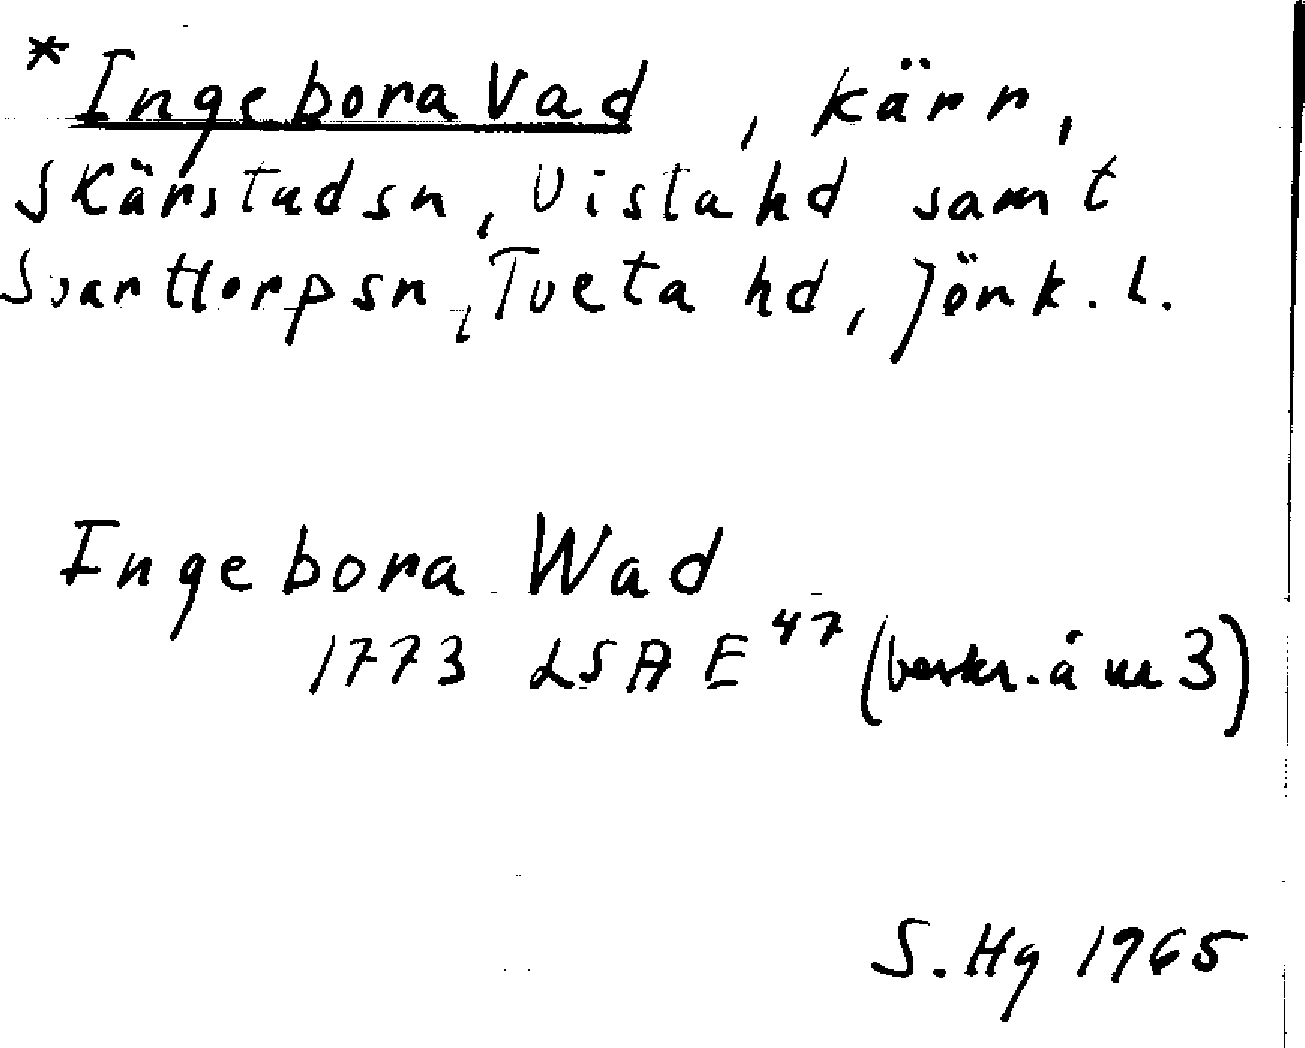 *Ingebora Vad, kärr,
Skärstad sn, Vista hd samt
Svarttorp sn, Tveta hd, Jönk. l.
Ingebora Wad
1773 LSA E 47 (beskr. å nr 3)
S. Hg 1965